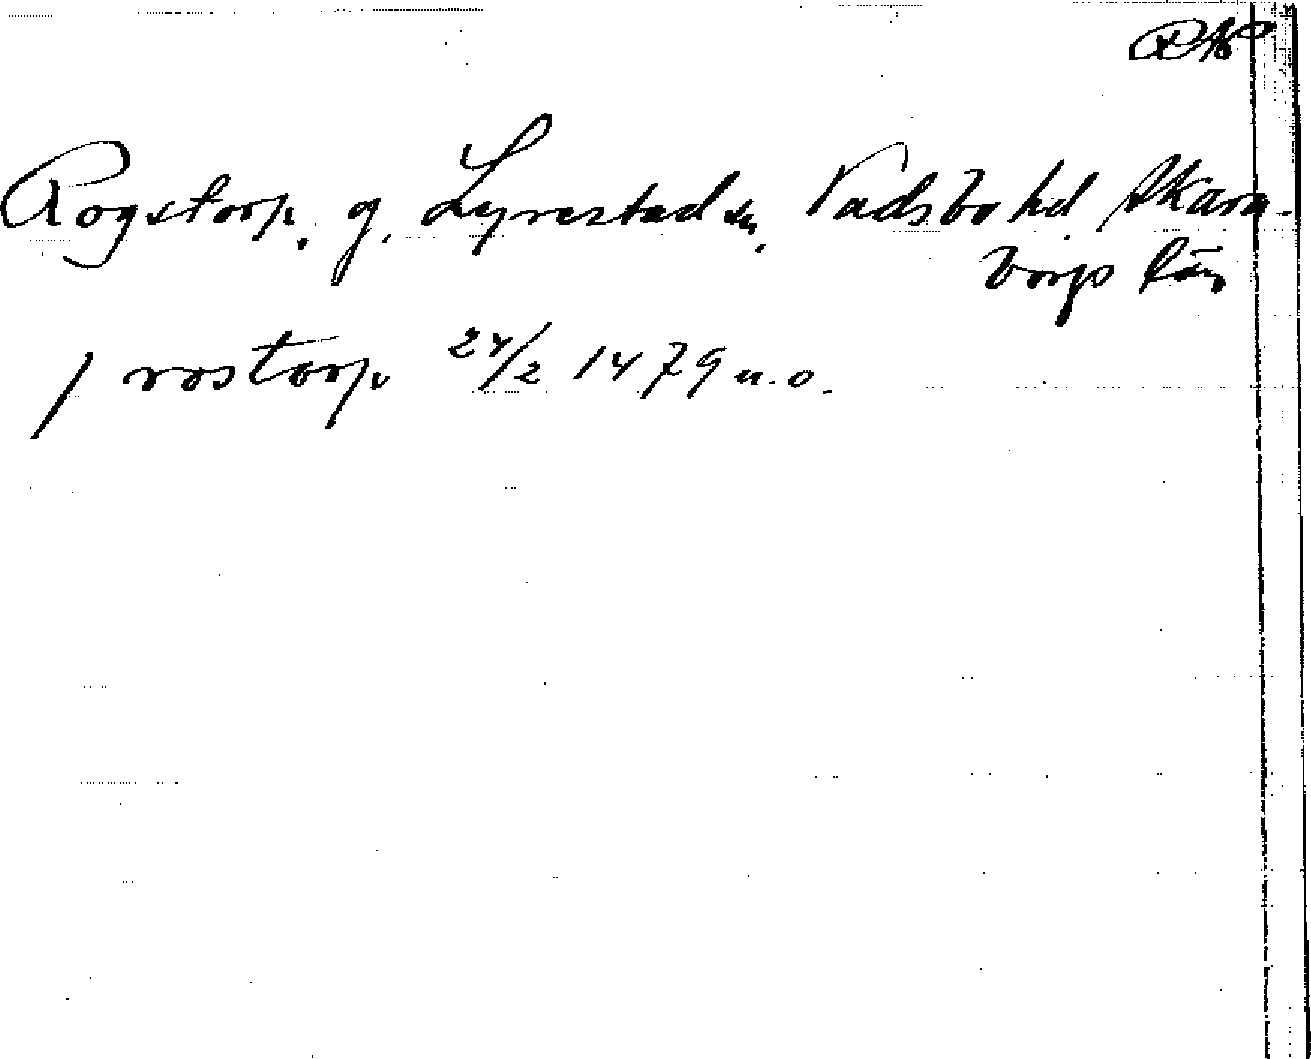 RAP
Rogstorp, g, Lyrestad sn, Vadsbo hd, Skara-
borgs län
/ rostorp 24/2 1479 u. o.